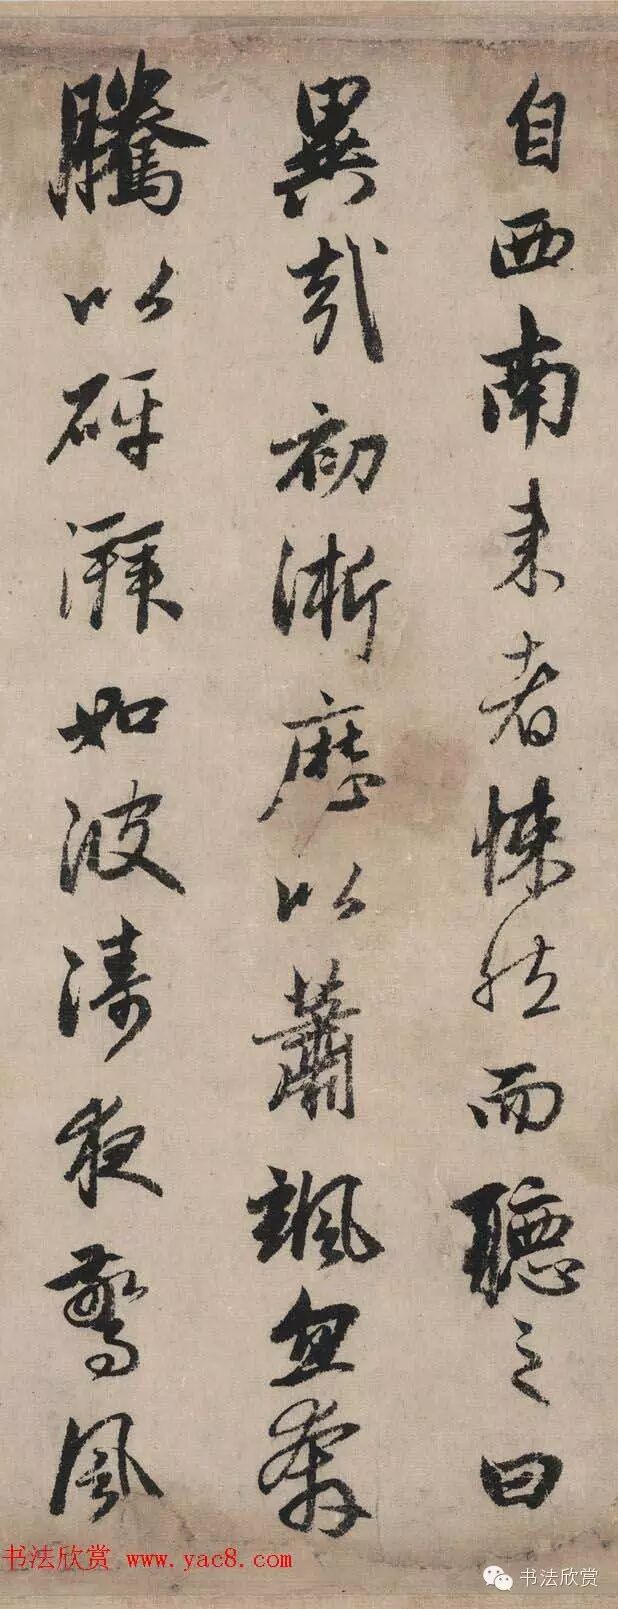 自西南来者悚然而聽之曰
異哉初淅歷以蕭颯忽奔
騰以砰湃如波濤夜驚風
书法欣赏 www.yac8.com
书法欣赏